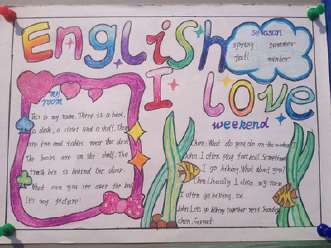 English
I Love
season
spring summer
fall winter
my
room
weekend
This is my room. There is a bed,
a desk, a closet and a shelf. They
are on the shelf. The
trash bin is behind the door.
What can you see over the bed?
It's my picture!
Chen: What do you do on the weekend?
John: I often play football. Sometimes
I go hiking. What about you?
Chen: Usually I clean my room.
I often go hiking, too.
John: Let's go hiking together next Sunday.
Chen: Great!